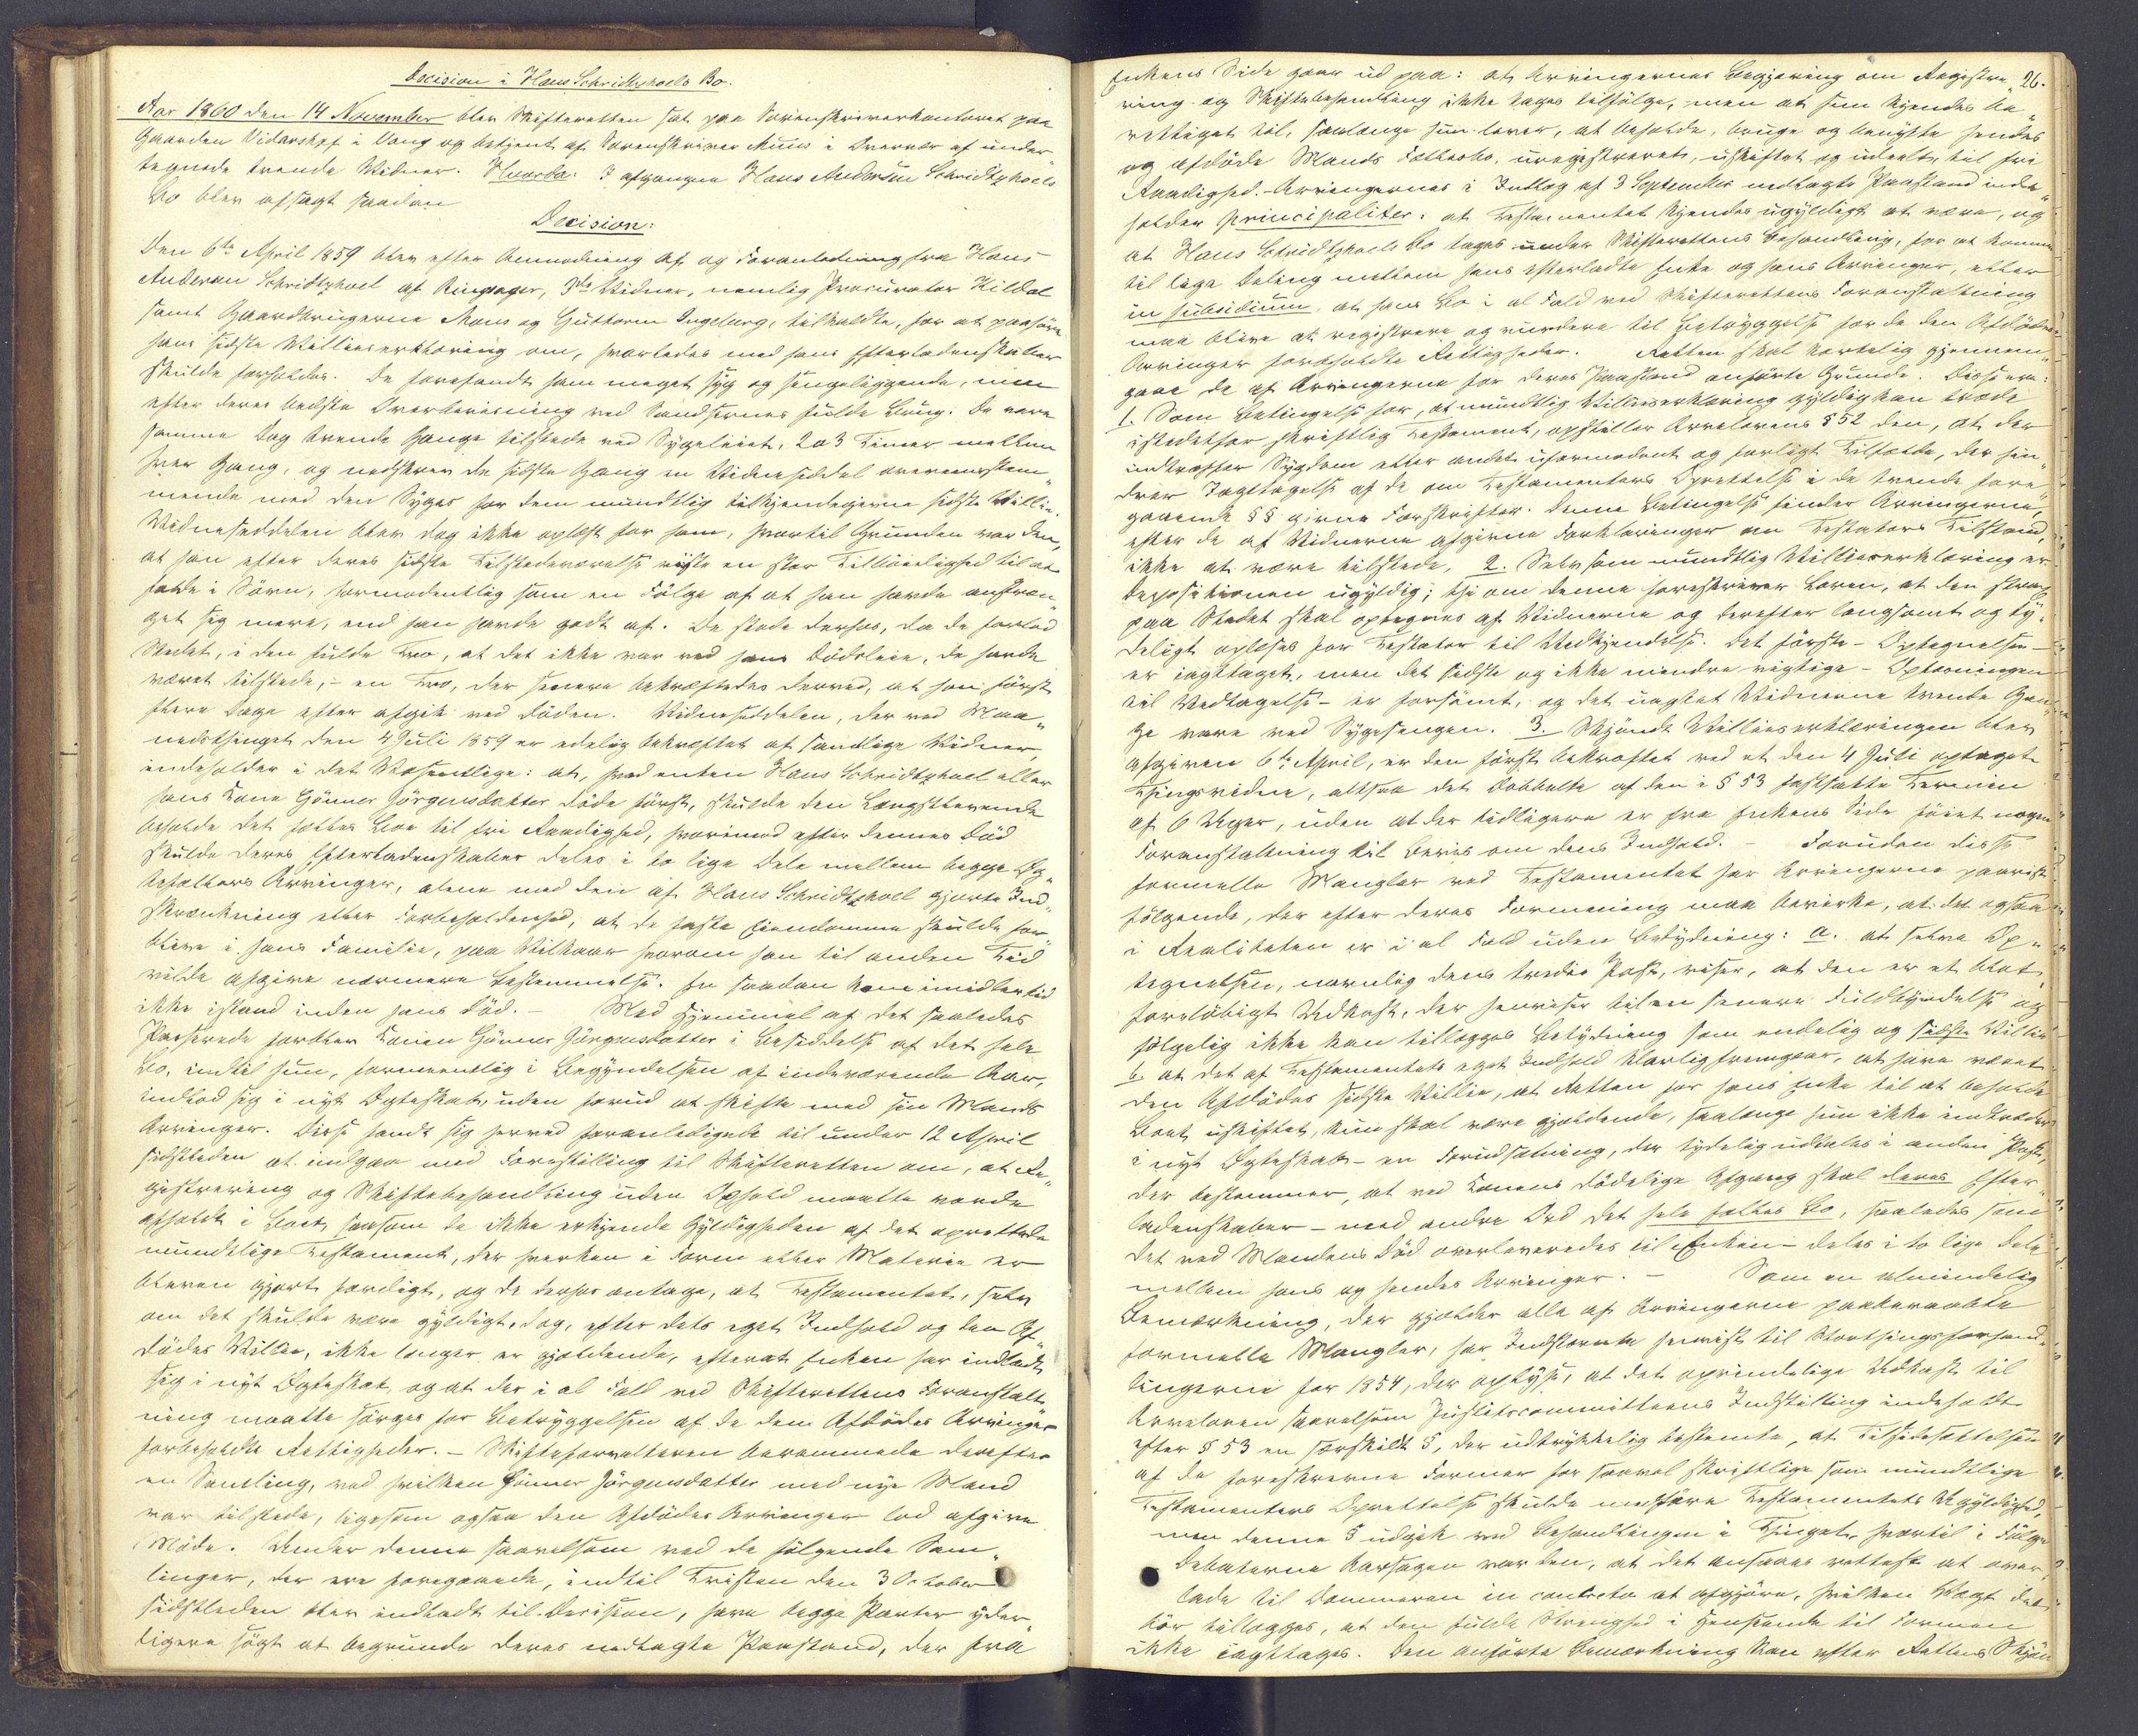 Decision i Hans Schridtzhoels Bo.
Aar 1860 den 14 November blev Skifteretten sat paa Sorenskriverkontoret paa
Gaarden Vidarshof i Vang og betjent af Sorenskriver Muus i Overvær af under„
tegnede tvende Vidner. Hvorda: I afgangne Hans Andersen Schridtzhoels
Bo blev afsagt saadan
Decision:
Den 6te April 1859 blev efter Anmodning af og Foranledning fra Hans
Andersen Schridtzhoel af Ringsager, 3de Vidner, nemlig Procurator Kildal
samt Gaardbrugerne Mons og Guttorm Ingeberg, tilkaldte, for at paahøre
hans sidste Villieserklæring om, hvorledes med hans Efterladenskaber
skulde forholdes. De forefandt ham meget syg og sengeliggende, men
efter deres bedste Overbeviisning ved Sandsernes fulde Brug. De vare
samme Dag trende Gange tilstede ved Sygeleiet, 2 a 3 Timer mellem
hver Gang, og nedskrev de sidste Gang en Vidneseddel overeensstem„
mende med den Syges for dem mundtlig tilkjendegivne sidste Villie.
Vidneseddelen blev dog ikke oplæst for ham, hvortil Grunden var den,
at han efter deres sidste Tilstedeværelse viiste en stor Tilbøielighed til at
falde i Søvn, formodentlig som en Følge af at han havde anstræn„
get sig mere, end han havde godt af. De stode derhos, da de forlod
Stedet, i den fulde Tro, at det ikke var ved hans Dødsleie, de havde
været tilstede, – en Tro, der senere bekræftedes derved, at han først
flere Dage efter afgik ved Døden. Vidneseddelen, der ved Maa„
nedsthinget den 4 Juli 1859 er edelig bekræftet af samtlige Vidner,
indeholder i det Væsentlige: at, hvad enten Hans Schridtzhoel eller
hans Kone Gunner Jörgensdatter døde først, skulde den Længstlevende
beholde det fælles Boe til fri Raadighed, hvorimod efter dennes Død
skulde deres Efterladenskaber deles i to lige Dele mellem begge Æg„
tefællers Arvinger, alene med den af Hans Schridtzhoel gjorte Ind„
skrænkning eller Forbeholdenhed, at de faste Eiendomme skulde for„
blive i hans Familie, paa Vilkaar hvorom han til anden Tid
vilde afgive nærmere Bestemmelse. En saadan kom imidlertid
ikke istand inden hans Død. – Med Hjemmel af det saaledes
Passerede forblev Konen Gunner Jörgensdatter i Besiddelse af det hele
Bo, indtil hun, formeentlig i Begyndelsen af indeværende Aar,
indlod sig i nyt Ægteskab, uden forud at skifte med sin Mands
Arvinger. Disse fandt sig herved foranledigede til under 12 April
sidstleden at indgaa med Forestilling til Skifteretten om, at Re„
gistrering og Skiftebehandling uden Ophold maatte vorde
afholdt i Boet, saasom de ikke erkjende Gyldigheden af det oprettede
mundtlige Testament, der hverken i Form eller Materie er
bleven gjort færdigt, og de derhos antage, at Testamentet, selv
om det skulde være gyldigt, dog, efter dets eget Indhold og den Af„
dødes Villie, ikke længer er gjældende, efterat Enken har indladt
sig i nyt Ægteskab, og at der i al Fald ved Skifterettens Foranstalt„
ning maatte sørges for Betryggelsen af de dem Afdødes Arvinger
forbeholdte Rettigheder. – Skifteforvalteren berammede derefter
en Samling, ved hvilken Gunner Jörgensdatter med nye Mand
var tilstede, ligesom ogsaa den Afdødes Arvinger lod afgive
Møde. Under denne saavelsom ved de følgende Sam„
linger, der ere foregaaede, indtil Tvisten den 3 October
sidstleden blev indladt til Decision, have begge Parter yder„
ligere søgt at begrunde deres nedlagte Paastand, der fra
26.
Enkens Side gaar ud paa: at Arvingernes Begjæring om Registre„
ring og Skiftebehandling ikke tages tilfølge, men at hun kjendes be„
rettiget til, saalænge hun lever, at beholde, bruge og benytte hendes
og afdøde Mands Fællesbo, uregistreret, uskiftet og udeelt, til fri
Raadighed. – Arvingernes i Indlæg af 3 September nedlagte Paastand inde„
holder principaliter: at Testamentet kjendes ugyldigt at være, og
at Hans Schridtzhoels Bo tages under Skifterettens Behandling, for at komme
til lige Deling mellem hans efterladte Enke og hans Arvinger, eller
in subsidium, at hans Bo i al Fald ved Skifterettens Foranstaltning
maa blive at registrere og vurdere til Betryggelse for de den Afdødes
Arvinger forbeholdte Rettigheder. Retten skal kortelig gjennem„
gaae de af Arvingerne for deres Paastand anførte Grunde. Disse ere:
1. Som Betingelse for, at mundtlig Villieserklæring gyldig kan træde
istedetfor skriftlig Testament, opstiller Arvelovens § 52 den, at der
indtræffer Sygdom eller andet uformodent og farligt Tilfælde, der hin„
drer Iagttagelse af de om Testamenters Oprettelse i de tvende fore„
gaaende §§ givne Forskrifter. Denne Betingelse finder Arvingerne,
efter de af Vidnerne afgivne Forklaringer om Testators Tilstand,
ikke at være tilstede. 2. Selv som mundtlig Villieserklæring er
Dispositionen ugyldig; thi om denne foreskriver Loven, at den strax
paa Stedet skal optegnes af Vidnerne og derefter langsomt og ty„
deligt oplæses for Testator til Vedkjendelse. Det første – Optegnelsen –
er iagttaget, men det sidste og ikke mindre vigtige – Oplæsningen
til Vedtagelse – er forsømt, og det uagtet Vidnerne trende Gan„
ge vare ved Sygesengen. 3. Skjøndt Villieserklæringen blev
afgiven 6te April, er den først bekræftet ved et den 4 Juli optaget
Thingsvidne, altsaa det Dobbelte af den i § 53 fastsatte Termin
af 6 Uger, uden at der tidligere er fra Enkens Side føiet nogen
Foranstaltning til Beviis om dens Indhold. – Foruden disse
formelle Mangler ved Testamentet har Arvingerne paaviist
følgende, der efter deres Formening maa bevirke, at det ogsaa
i Realiteten er i al Fald uden Betydning: a. at selve Op„
tegnelsen, navnlig dens tredie Post, viser, at den er et blot
foreløbigt Udkast, der henviser til en senere Fuldbyrdelse og
følgelig ikke kan tillægges Betydning som endelig og sidste Villie
b. at det af Testamentets eget Indhold klarlig fremgaar, at have været
den Afdødes sidste Villie, at Retten for hans Enke til at beholde
Boet uskiftet, kun skal være gjældende, saalænge hun ikke indtræder
i nyt Ægteskab – en Forudsætning, der tydelig udtales i anden Post,
der bestemmer, at ved Konens dødelige Afgang skal deres Efter„
ladenskaber – med andre Ord det hele fælles Bo, saaledes som
det ved Mandens Død overleveredes til Enken – deles i to lige Dele
mellem hans og hendes Arvinger. – Som en almindelig
Bemærkning, der gjælder alle af Arvingerne paaberaabte
formelle Mangler, har Indstævnte henviist til Storthingsforhand„
lingerne for 1854, der oplyse, at det oprindelige Udkast til
Arveloven saavelsom Justitscommitteens Indstilling indeholdt
efter § 53 en særskildt §, der udtrykkelig bestemte, at Tilsidesættelsen
af de foreskrevne Former for saavel skriftlige som mundtlige
Testamenters Oprettelse skulde medføre Testamentets Ugyldighed,
men denne § udgik ved Behandlingen i Thinget, hvortil i Følge
Debatterne Aarsagen var den, at det ansaaes rettest at over„
lade til Dommeren in concreto at afgjøre, hvilken Vægt det
bør tillægges, at den fulde Strenghed i Henseende til Formen
ikke iagttages. Den anførte Bemærkning kan efter Rettens Skjøn